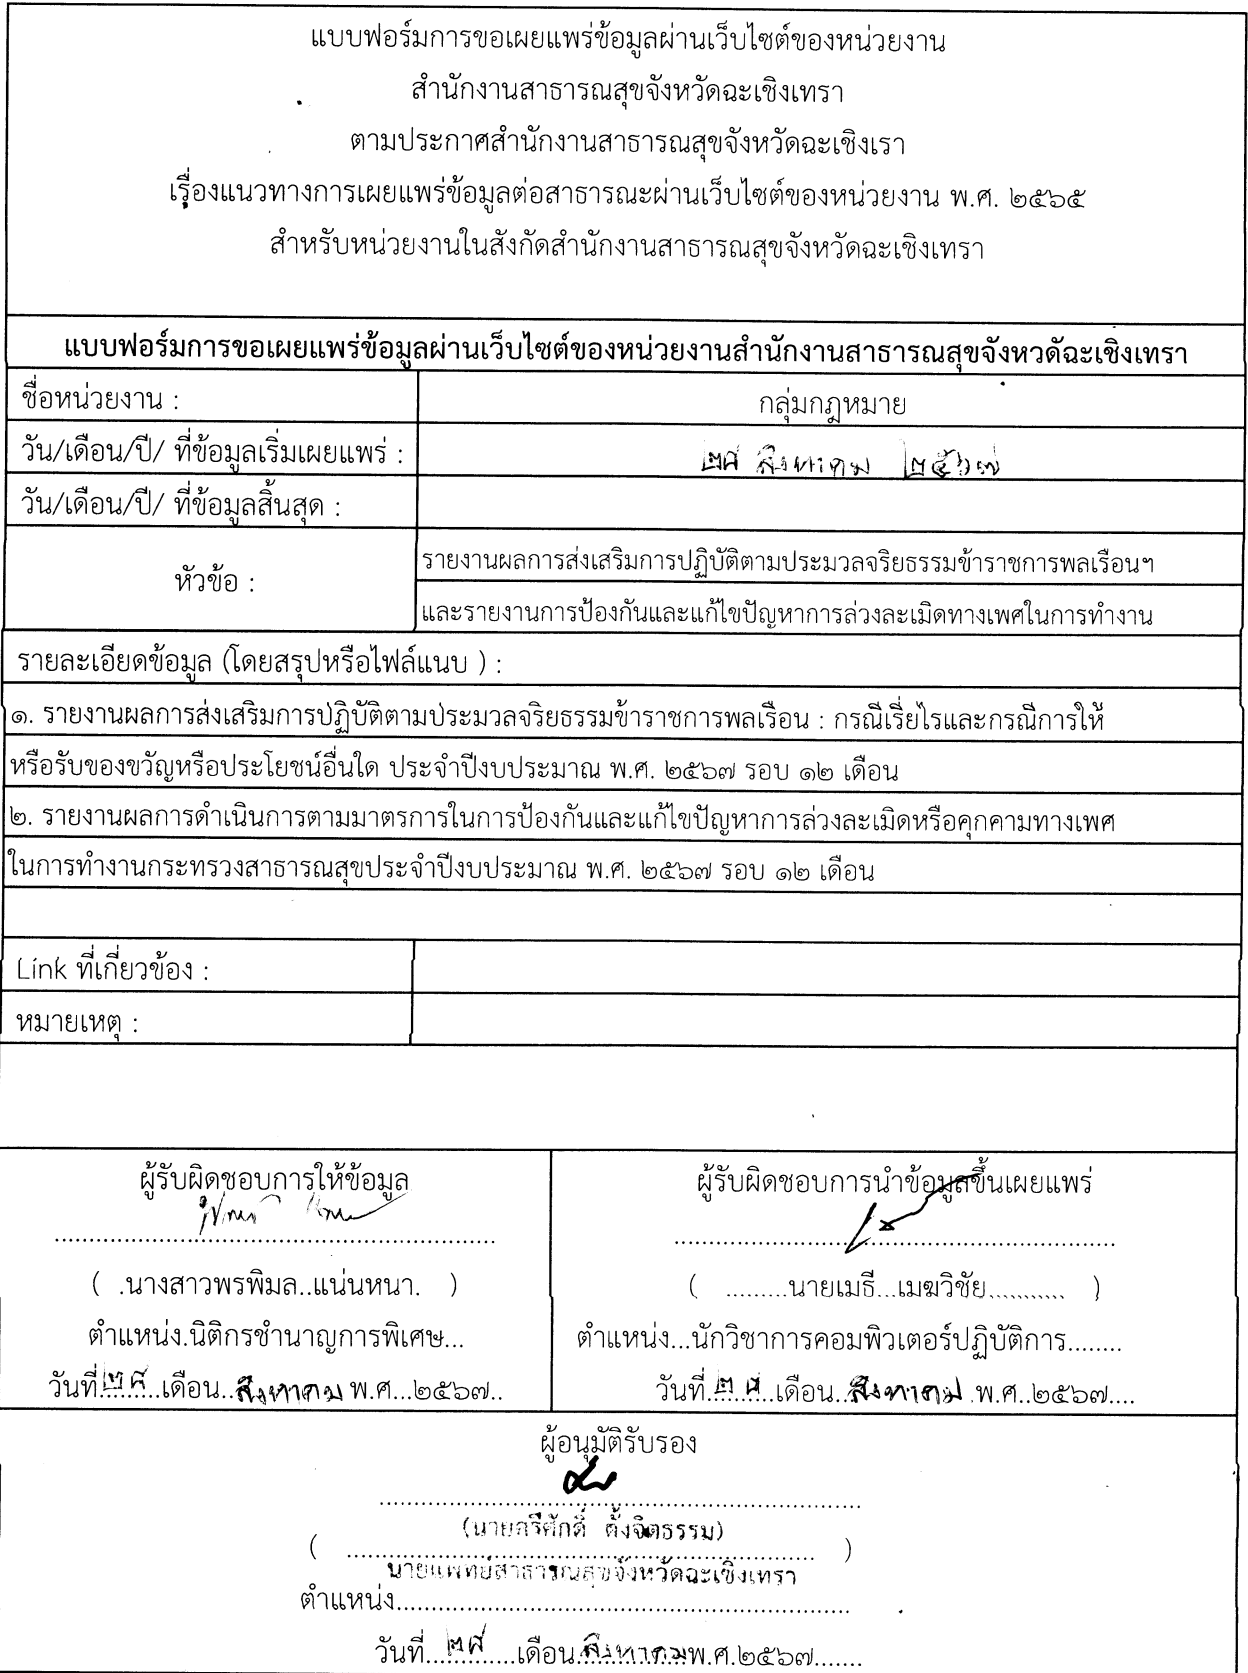 แบบฟอร์มการขอเผยแพร่ข้อมูลผ่านเว็บไซต์ของหน่วยงาน
สำนักงานสาธารณสุขจังหวัดฉะเชิงเทรา
ตามประกาศสำนักงานสาธารณสุขจังหวัดฉะเชิงเรา
เรื่องแนวทางการเผยแพร่ข้อมูลต่อสาธารณะผ่านเว็บไซต์ของหน่วยงาน พ.ศ. ๒๕๖๕
สำหรับหน่วยงานในสังกัดสำนักงานสาธารณสุขจังหวัดฉะเชิงเทรา
แบบฟอร์มการขอเผยแพร่ข้อมูลผ่านเว็บไซต์ของหน่วยงานสำนักงานสาธารณสุขจังหวดัฉะเชิงเทรา
ชื่อหน่วยงาน : กลุ่มกฎหมาย
วัน/เดือน/ปี/ ที่ข้อมูลเริ่มเผยแพร่ : สิงหาคม ๒๕๖๗
วัน/เดือน/ปี/ ที่ข้อมูลสิ้นสุด :
หัวข้อ :
รายงานผลการส่งเสริมการปฏิบัติตามประมวลจริยธรรมข้าราชการพลเรือนฯ
และรายงานการป้องกันและแก้ไขปัญหาการล่วงละเมิดทางเพศในการทำงาน
รายละเอียดข้อมูล (โดยสรุปหรือไฟล์แนบ ) :
๑. รายงานผลการส่งเสริมการปฏิบัติตามประมวลจริยธรรมข้าราชการพลเรือน : กรณีเรี่ยไรและกรณีการให้
หรือรับของขวัญหรือประโยชน์อื่นใด ประจำปีงบประมาณ พ.ศ. ๒๕๖๗ รอบ ๑๒ เดือน
๒. รายงานผลการดำเนินการตามมาตรการในการป้องกันและแก้ไขปัญหาการล่วงละเมิดหรือคุกคามทางเพศ
ในการทำงานกระทรวงสาธารณสุขประจำปีงบประมาณ พ.ศ. ๒๕๖๗ รอบ ๑๒ เดือน
Link ที่เกี่ยวข้อง :
หมายเหตุ :
ผู้รับผิดชอบการให้ข้อมูล
( .นางสาวพรพิมล..แน่นหนา. )
ตำแหน่ง.นิติกรชำนาญการพิเศษ...
วันที่.........เดือน..สิงหาคม พ.ศ...๒๕๖๗..
ผู้รับผิดชอบการนำข้อมูลขึ้นเผยแพร่
( .........นายเมธี...เมฆวิชัย........... )
ตำแหน่ง...นักวิชาการคอมพิวเตอร์ปฏิบัติการ........
วันที่..........เดือน...สิงหาคม.พ.ศ..๒๕๖๗....
ผู้อนุมัติรับรอง
ตั้งจิตธรรม)
นายแพทย์สาธารณสุขจังหวัดฉะเชิงเทรา
ตำแหน่ง..................................................................
วันที่.............เดือน.สิงหาคมพ.ศ.๒๕๖๗.......